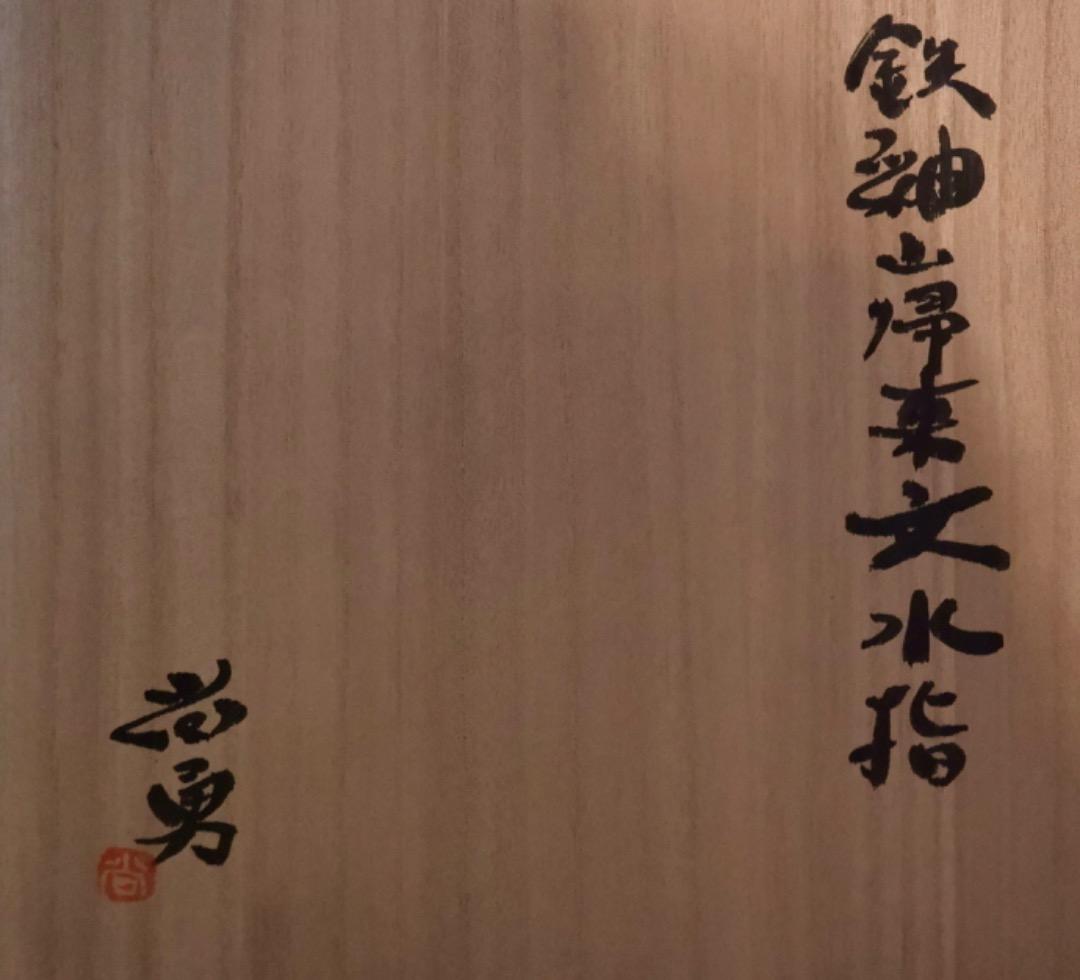 鉄釉山帰来文水指
尚勇
尚